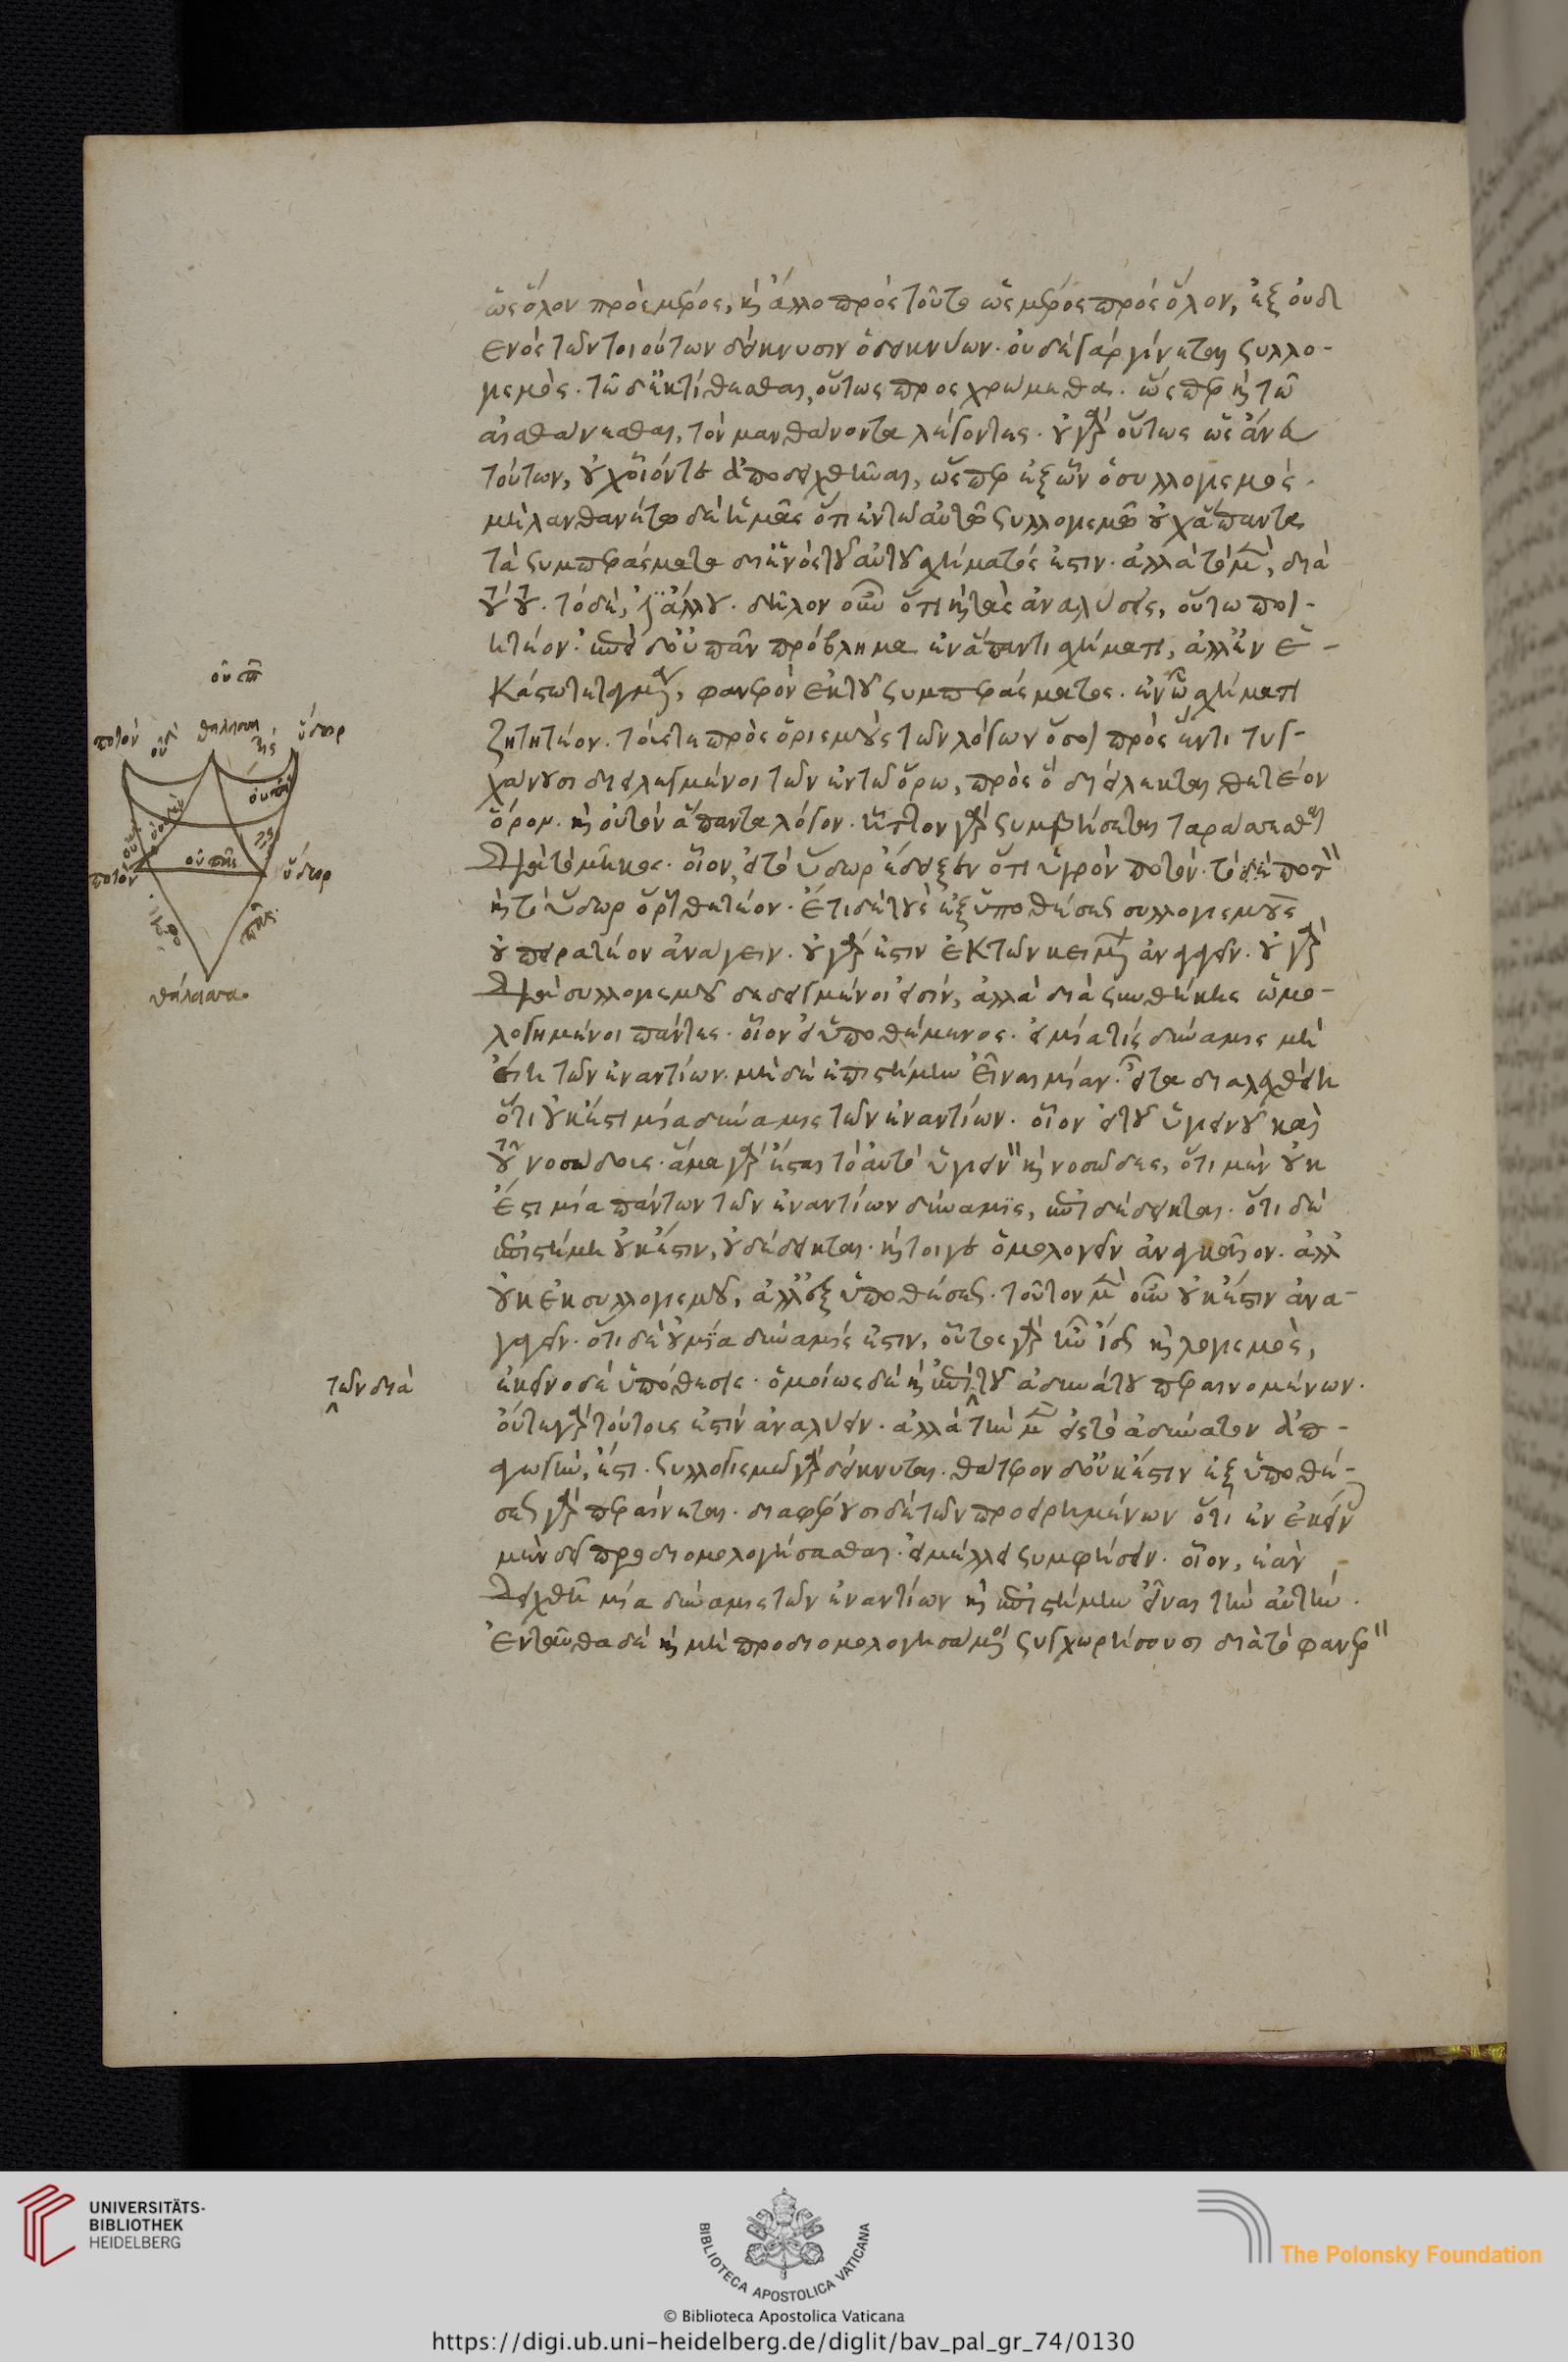 ὡς ὅλον πρὸς μέρος, καὶ ἄλλο πρὸς τοῦτο ὡς μέρος πρὸς ὅλον, ἐξ οὐδ
ενὸς τῶν τοιούτων δείκνυσιν ὁ δεικνύων. οὐδὲ γὰρ γίνεται συλλο-
γισμός. τῶ δ' ἐκτίθεσθαι, οὕτως προσχρώμεθα. ὥσπερ καὶ τῶ
αἰσθάνεσθαι, τὸν μανθάνοντα λέγοντες. οὐ γὰρ οὕτως ὡς ἄνευ
τούτων, οὐχ οἷόν τε ἀποδειχθῆναι, ὥσπερ ἐξ ὧν ὁ συλλογισμός.
μὴ λανθανέτω δὲ ἡμᾶς ὅτι ἐν τῶ αὐτῶ συλλογισμῶ οὐχ ἅπαντα
τὰ συμπεράσματα δι' ἑνὸς τοῦ αὐτοῦ σχήματός ἐστιν. ἀλλὰ τὸ μὲν, διὰ
τούτου. τὸ δὲ, δι' ἄλλου. δῆλον οὖν ὅτι καὶ τὰς ἀναλύσεις, οὕτω ποι-
ητέον. ἐπεὶ δ' οὐ πᾶν πρόβλημα ἐν ἅπαντι σχήματι, ἀλλ' ἐν ἑ-
κάστω τεταγμένα, φανερὸν ἐκ τοῦ συμπεράσματος. ἐν ὧ σχήματι
ζητητέον. τούς τε πρὸς ὁρισμοὺς τῶν λόγων ὅσοι πρὸς ἕν τι τυγ-
χάνουσι διειλεγμένοι τῶν ἐν τῶ ὅρω, πρὸς ὃ διείλεκται θετέον
ὅρον. καὶ οὐ τὸν ἅπαντα λόγον. ἧττον γὰρ συμβήσεται ταράττεσθαι
διὰ τὸ μῆκος. οἷον, εἰ τὸ ὕδωρ ἔδειξεν ὅτι ὑγρὸν ποτόν. τὸ δὲ ποτὸν
καὶ τὸ ὕδωρ ὅροι θετέον. Ἔτι δὲ τοὺς ἐξ ὑποθέσεως συλλογισμοὺς
οὐ πειρατέον ἀνάγειν. οὐ γὰρ ἔστιν ἐκ τῶν κειμένων ἀνάγειν. οὐ γὰρ
διὰ συλλογισμοῦ δεδειγμένοι εἰσὶν, ἀλλὰ διὰ συνθήκης ὡμο-
λογημένοι πάντες. οἷον εἰ ὑποθέμενος. εἰ μία τις δύναμις μὴ
εἴη τῶν ἐναντίων. μηδὲ ἐπιστήμην εἶναι μίαν. εἶτα διαλεχθείη
ὅτι οὐκ ἔστι μία δύναμις τῶν ἐναντίων. οἷον εἰ τοῦ ὑγιεινοῦ καὶ
τοῦ νοσώδους. ἅμα γὰρ ἔσται τὸ αὐτὸ ὑγιεινὸν καὶ νοσῶδες, ὅτι μὲν οὐκ
ἔστι μία πάντων τῶν ἐναντίων δύναμις, ἐπιδέδεικται. ὅτι δὲ
ἐπιστήμη οὐκ ἔστιν, οὐ δέδεικται. καίτοι γε ὁμολογεῖν ἀναγκαῖον. ἀλλ'
οὐκ ἐκ συλλογισμοῦ, ἀλλ' ἐξ ὑποθέσεως. τοῦτον μὲν οὖν οὐκ ἔστιν ἀνα-
γαγεῖν. ὅτι δὲ οὐ μία δύναμίς ἐστιν, οὗτος γὰρ ἦν ἴσως καὶ λογισμὸς,
ἐκεῖνο δὲ ὑπόθεσις. ὁμοίως δὲ καὶ ἐπὶ τοῦ ἀδυνάτου περαινομένων.
οὔτε γὰρ τούτοις ἐστὶν ἀναλύειν. ἀλλὰ τὴν μὲν εἰς τὸ ἀδύνατον ἀπ-
αγωγὴν, ἔστι. συλλογισμῶ γὰρ δείκνυται. θάτερον δ' οὐκ ἔστιν ἐξ ὑποθέ-
σεως γὰρ περαίνεται. διαφέρουσι δὲ τῶν προειρημένων ὅτι ἐν ἐκείνοις
μὲν δεῖ προδιομολογήσασθαι. εἰ μέλλει συμφήσειν. οἷον, ἐὰν
δειχθῆ μία δύναμις τῶν ἐναντίων καὶ ἐπιστήμην εἶναι τὴν αὐτήν.
Ἐνταῦθα δὲ καὶ μὴ προδιομολογησάμενοι συγχωρήσουσι διὰ τὸ φανερὸν
τῶν διὰ
ποτόν
θάλασσα
ὕδωρ
ποτόν
οὐ πᾶς
ὕδωρ
θάλασσα
UNIVERSITÄTS-
BIBLIOTHEK
HEIDELBERG
BIBLIOTECA APOSTOLICA VATICANA
The Polonsky Foundation
© Biblioteca Apostolica Vaticana
https://digi.ub.uni-heidelberg.de/diglit/bav_pal_gr_74/0130